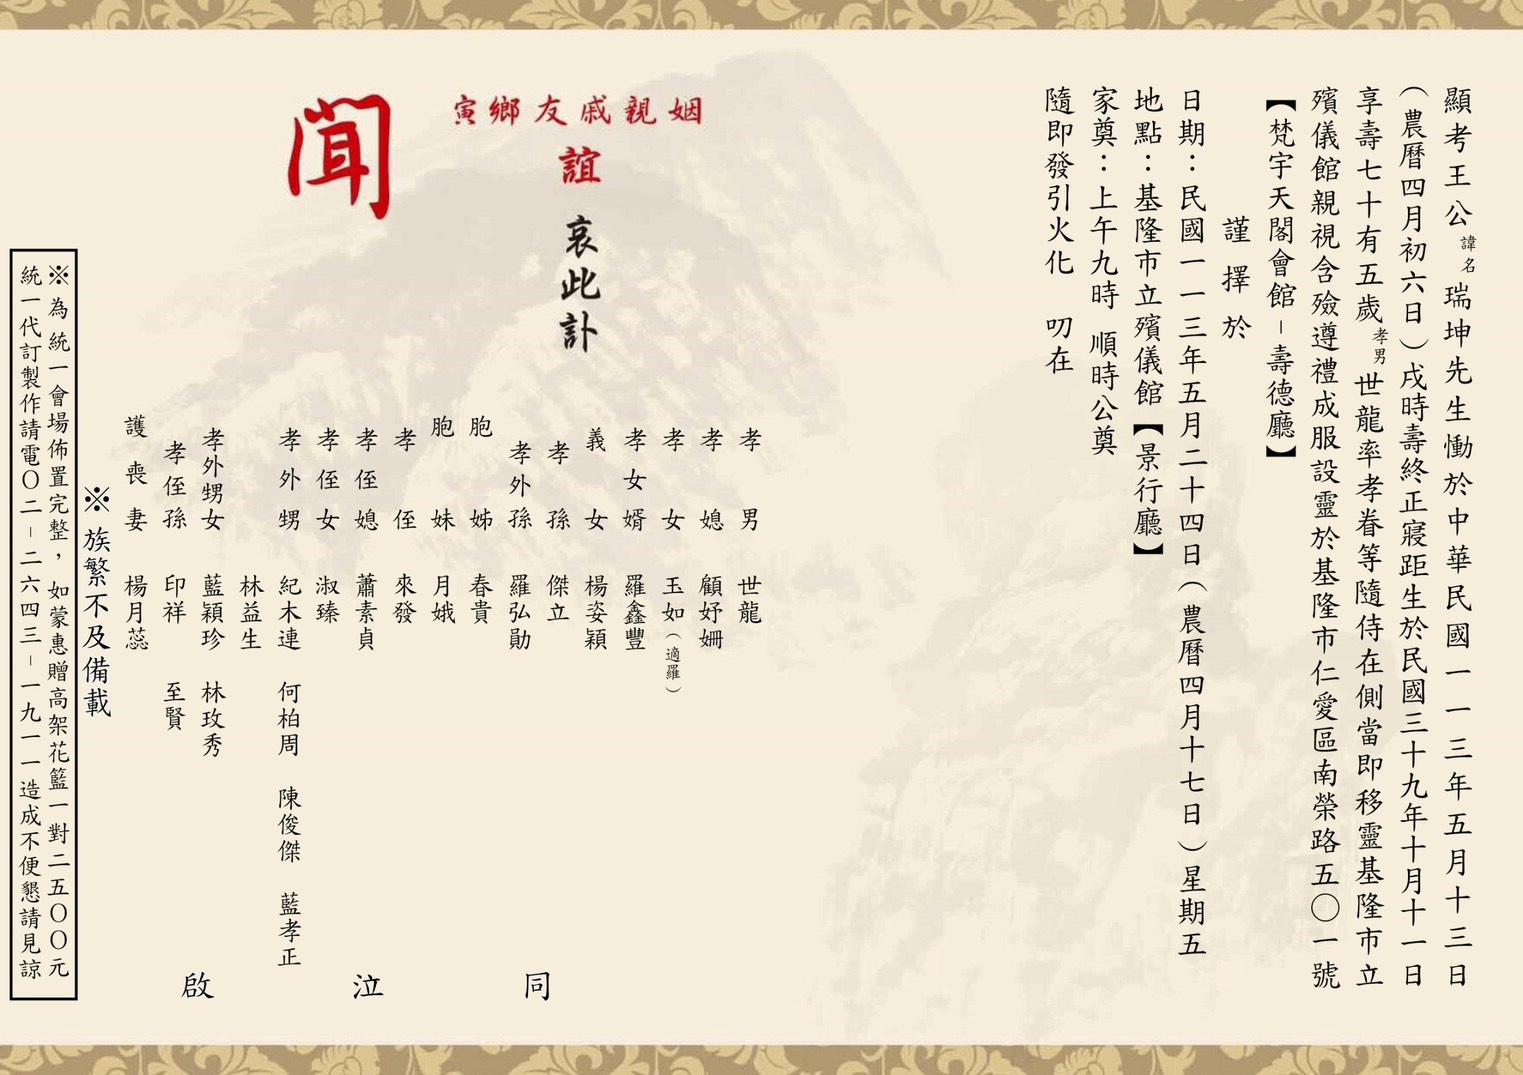 顯考王公諱名瑞坤先生慟於中華民國一一三年五月十三日
(農曆四月初六日)戌時壽終正寢距生於民國三十九年十月十一日
享壽七十有五歲孝男世龍率孝眷等隨侍在側當即移靈基隆市立
殯儀館親視含殮遵禮成服設靈於基隆市仁愛區南榮路五〇一號
【梵宇天閣會館-壽德廳】
謹擇於
日期:民國一一三年五月二十四日(農曆四月十七日)星期五
地點:基隆市立殯儀館【景行廳】
家奠:上午九時 順時公奠
隨即發引火化 叨在
姻親戚友鄉寅
誼 哀此訃
聞
孝男 世龍
孝媳 顧妤姍
孝女 玉如(適羅)
孝女婿 羅鑫豐
義女 楊姿穎
孝孫 傑立
孝外孫 羅弘勛
胞姊 春貴
胞妹 月娥
孝侄 來發
孝侄媳 蕭素貞
孝侄女 淑臻
孝外甥 紀木連 何柏周 陳俊傑 藍孝正
林益生
孝外甥女 藍穎珍 林玫秀
孝侄孫 印祥 至賢
護喪妻 楊月蕊
同泣啟
※族繁不及備載
※為統一會場佈置完整,如蒙惠贈高架花籃一對二五〇〇元
統一代訂製作請電〇二-二六四三-一九一一造成不便懇請見諒